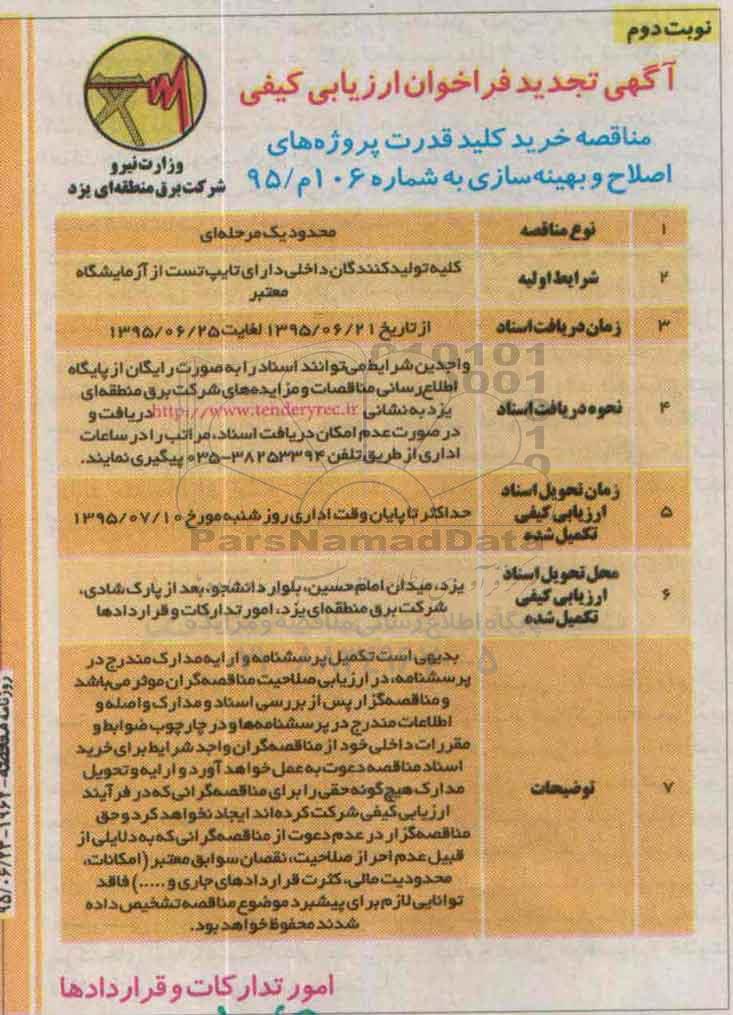 نوبت دوم
آگهی تجدید فراخوان ارزیابی کیفی
مناقصه خرید کلید قدرت پروژه‌های
اصلاح و بهینه‌سازی به شماره ۱۰۶م/۹۵
وزارت نیرو
شرکت برق منطقه‌ای یزد
۱ نوع مناقصه محدود یک مرحله‌ای
۲ شرایط اولیه کلیه تولیدکنندگان داخلی دارای تایپ تست از آزمایشگاه
معتبر
۳ زمان دریافت اسناد از تاریخ ۱۳۹۵/۰۶/۲۱ لغایت ۱۳۹۵/۰۶/۲۵
۴ نحوه دریافت اسناد
واجدین شرایط می‌توانند اسناد را به صورت رایگان از پایگاه
اطلاع‌رسانی مناقصات و مزایده‌های شرکت برق منطقه‌ای
یزد به نشانی http://www.tenderyrec.ir دریافت و
در صورت عدم امکان دریافت اسناد، مراتب را در ساعات
اداری از طریق تلفن ۳۸۲۵۳۳۹۴-۰۳۵ پیگیری نمایند.
۵ زمان تحویل اسناد
ارزیابی کیفی
تکمیل شده
حداکثر تا پایان وقت اداری روز شنبه مورخ ۱۳۹۵/۰۷/۱۰
۶ محل تحویل اسناد
ارزیابی کیفی
تکمیل شده
یزد، میدان امام حسین، بلوار دانشجو، بعد از پارک شادی،
شرکت برق منطقه‌ای یزد، امور تدارکات و قراردادها
۷ توضیحات
بدیهی است تکمیل پرسشنامه و ارایه مدارک مندرج در
پرسشنامه، در ارزیابی صلاحیت مناقصه‌گران موثر می‌باشد
و مناقصه‌گزار پس از بررسی اسناد و مدارک واصله و
اطلاعات مندرج در پرسشنامه‌ها و در چارچوب ضوابط و
مقررات داخلی خود از مناقصه‌گران واجد شرایط برای خرید
اسناد مناقصه دعوت به عمل خواهد آورد و ارایه و تحویل
مدارک هیچ گونه حقی را برای مناقصه‌گرانی که در فرآیند
ارزیابی کیفی شرکت کرده‌اند ایجاد نخواهد کرد و حق
مناقصه‌گزار در عدم دعوت از مناقصه‌گرانی که به دلایلی از
قبیل عدم احراز صلاحیت، نقصان سوابق معتبر (امکانات،
محدودیت مالی، کثرت قراردادهای جاری و .....) فاقد
توانایی لازم برای پیشبرد موضوع مناقصه تشخیص داده
شدند محفوظ خواهد بود.
امور تدارکات و قراردادها
ParsNamadData
پایگاه اطلاع رسانی مناقصه و مزایده
روزنامه مناقصه - ۱۹۶۲ - ۹۵/۰۶/۲۳